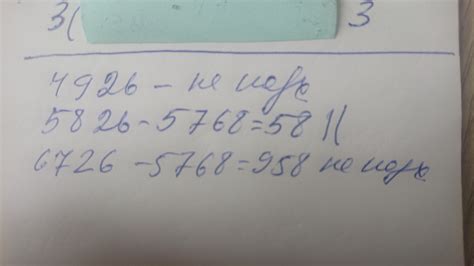 3( 3
4926 - не подх
5826-5768=58 !(
6726 -5768=958 не подх